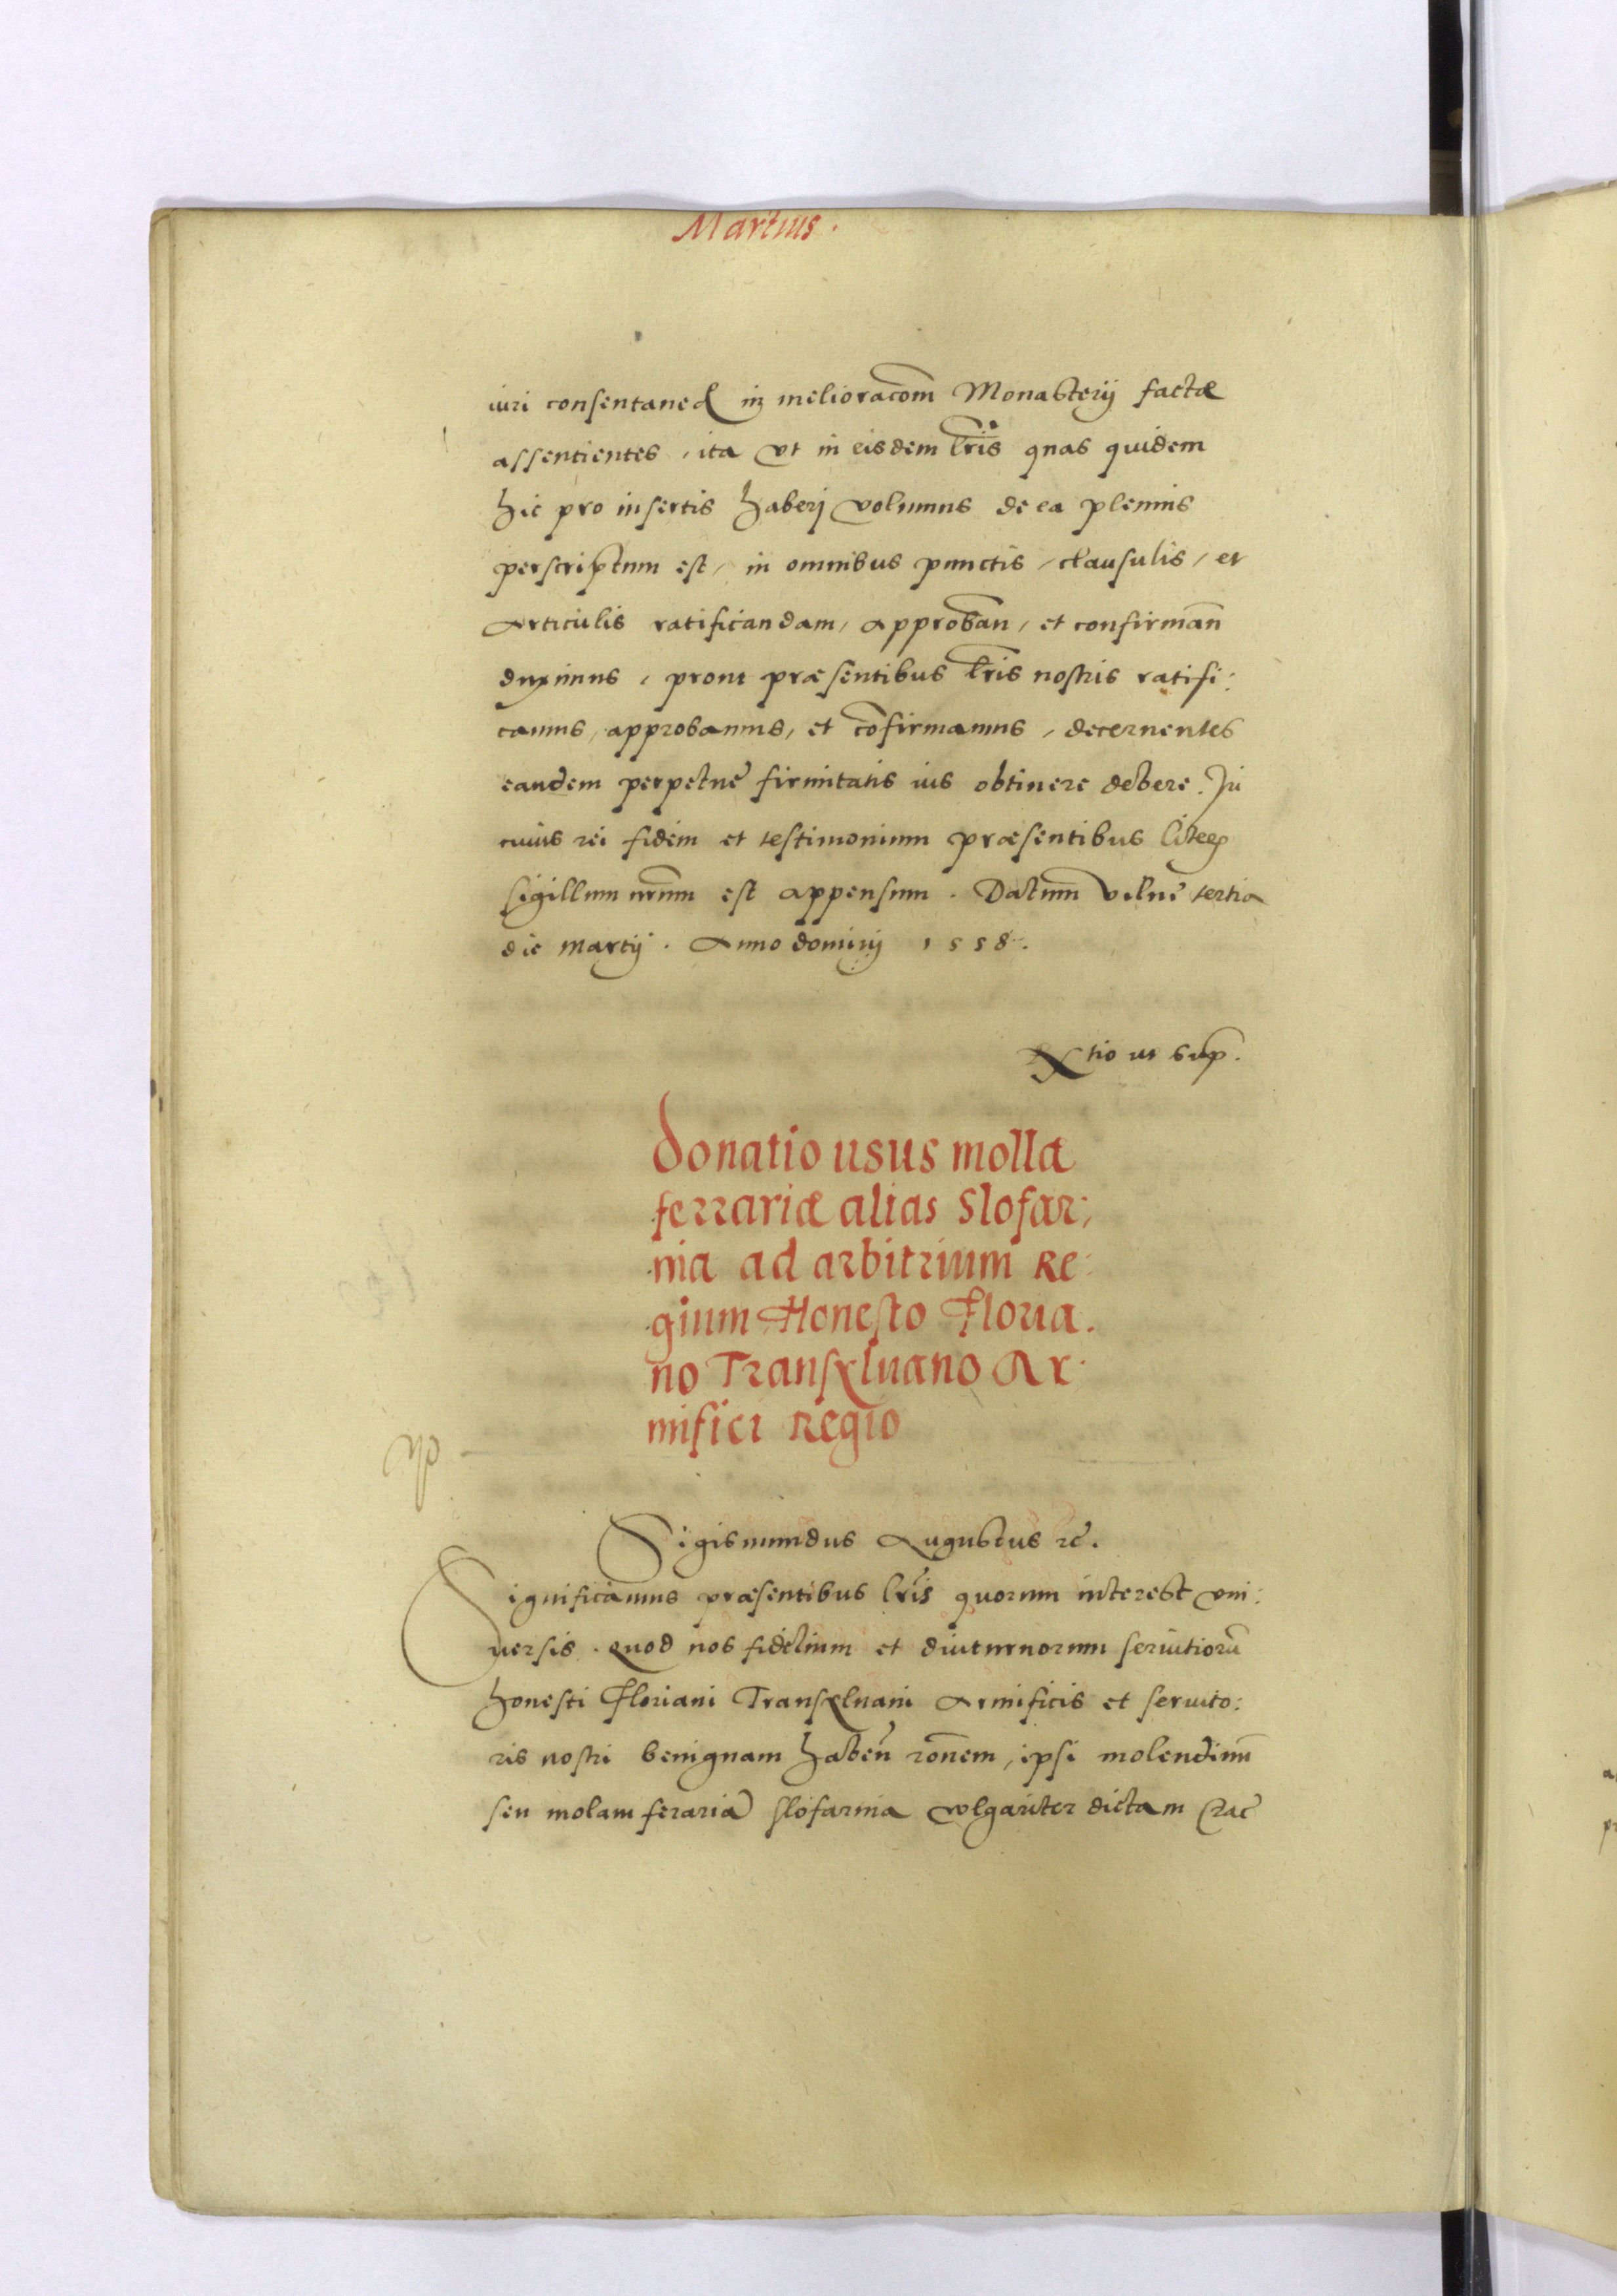 Martius.
iuri consentaneę in melioracõm Monasterij factæ
assentientes, ita vt in eisdem lr̃is quas quidem
hic pro insertis haberj volumus de ea plenius
perscriptum est, in omnibus punctis, clausulis, et
Articulis ratificandam, approbañ, et confirmañ
duximus, prout præsentibus lr̃is nostris ratifi:
camus, approbamus, et cõfirmamus, decernentes
eandem perpetuę firmitatis ius obtinere debere. In
cuius rei fidem et testimonium præsentibus
sigillum nr̃um est appensum. Datum vilnę tertia
die Martij. Anno dominj 1558.
tio ut sup.
Donatio usus mollæ
ferrariæ alias Slofar:
nia ad arbitrium Re:
gium Honesto Floria.
no Transylvano Ar:
mifici Regio
Sigismundus Augustus zc̃.
Significamus præsentibus lr̃is quorum interest vni:
uersis. Quod nos fidelium et diuturnorum seruitiorũ
honesti Floriani Transyluani Armificis et seruito:
ris nostri benignam habeñ rõnem, ipsi molendinũ
seu molam ferariã slofarnia volgariter dictam